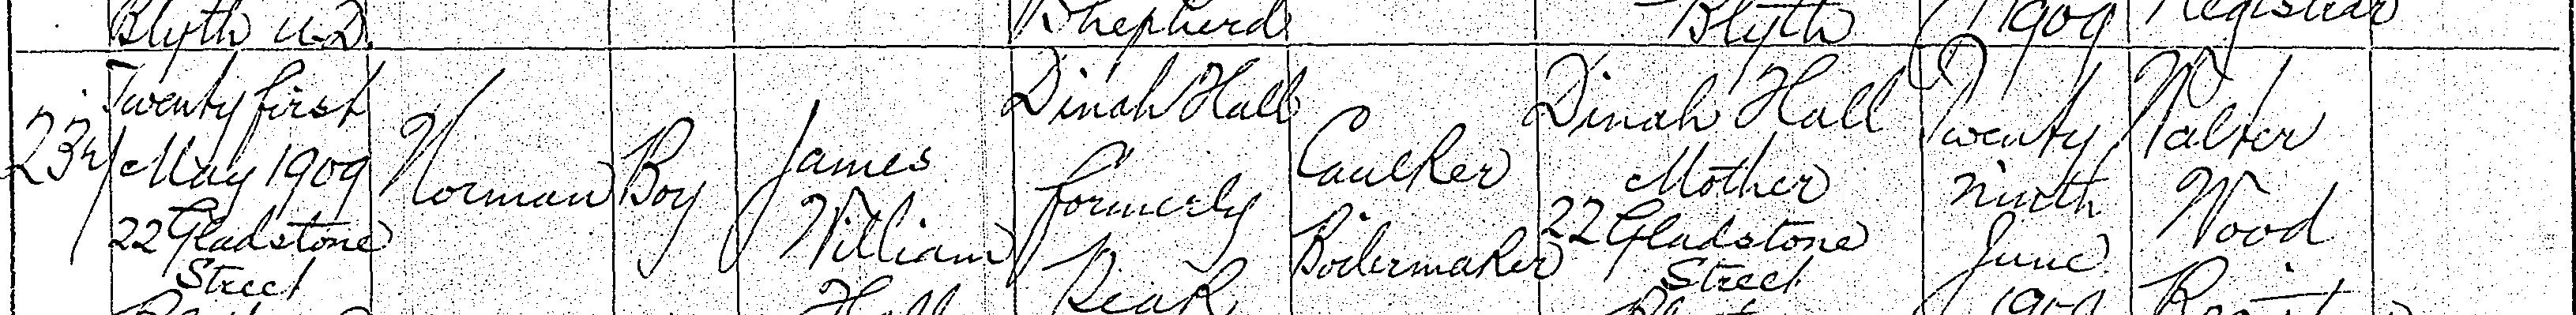 Blyth U.D. Shepherd Blyth 1909 Registrar
Twenty first Dinah Hall Dinah Hall Twenty Walter
234 May 1909 Norman Boy James formerly Caulker Mother ninth Wood
22 Gladstone William Boilermaker 22 Gladstone June
Street Hall Street 1909